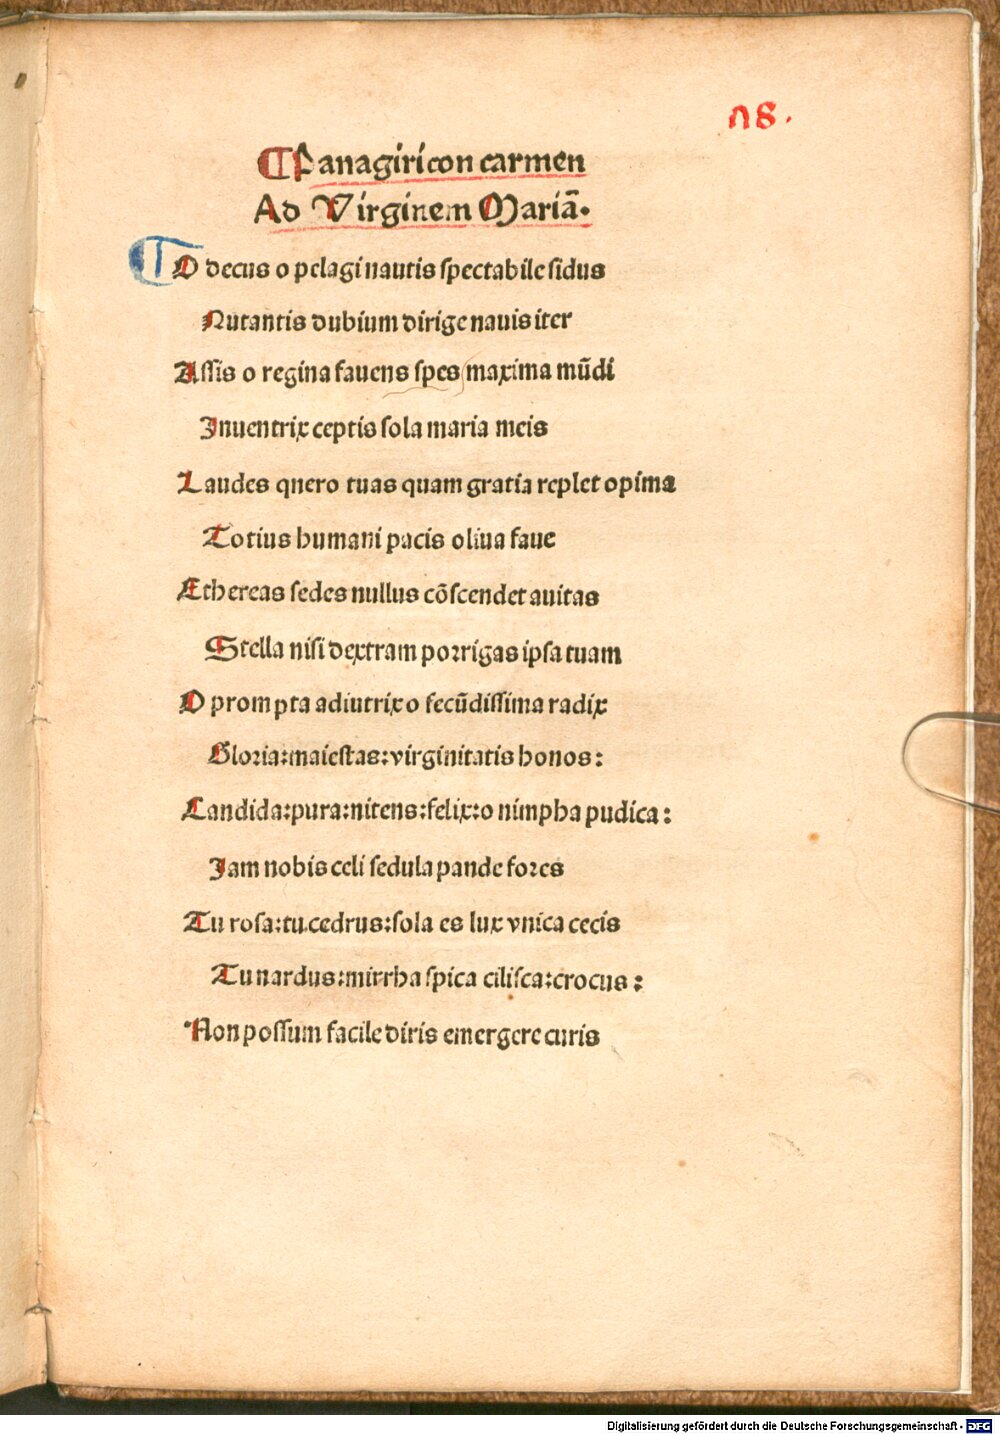 n8.
¶Panagiricon carmen
Ad Virginem Mariā.
¶O decus o pelagi nautis spectabile sidus
Nutantis dubium dirige nauis iter
Assis o regina fauens spes maxima mūdi
Inuentrix ceptis sola maria meis
Laudes quero tuas quam gratia replet opima
Totius humani pacis oliua faue
Ethereas sedes nullus cōscendet auitas
Stella nisi dextram porrigas ipsa tuam
O prompta adiutrix o fecūdissima radix
Gloria:maiestas:virginitatis honos:
Candida:pura:nitens:felix:o nimpha pudica:
Iam nobis celi sedula pande fores
Tu rosa:tu.cedrus:sola es lux vnica cecis
Tu nardus:mirrha spica cilisca:crocus:
Non possum facile diris emergere curis
Digitalisierung gefördert durch die Deutsche Forschungsgemeinschaft - DFG